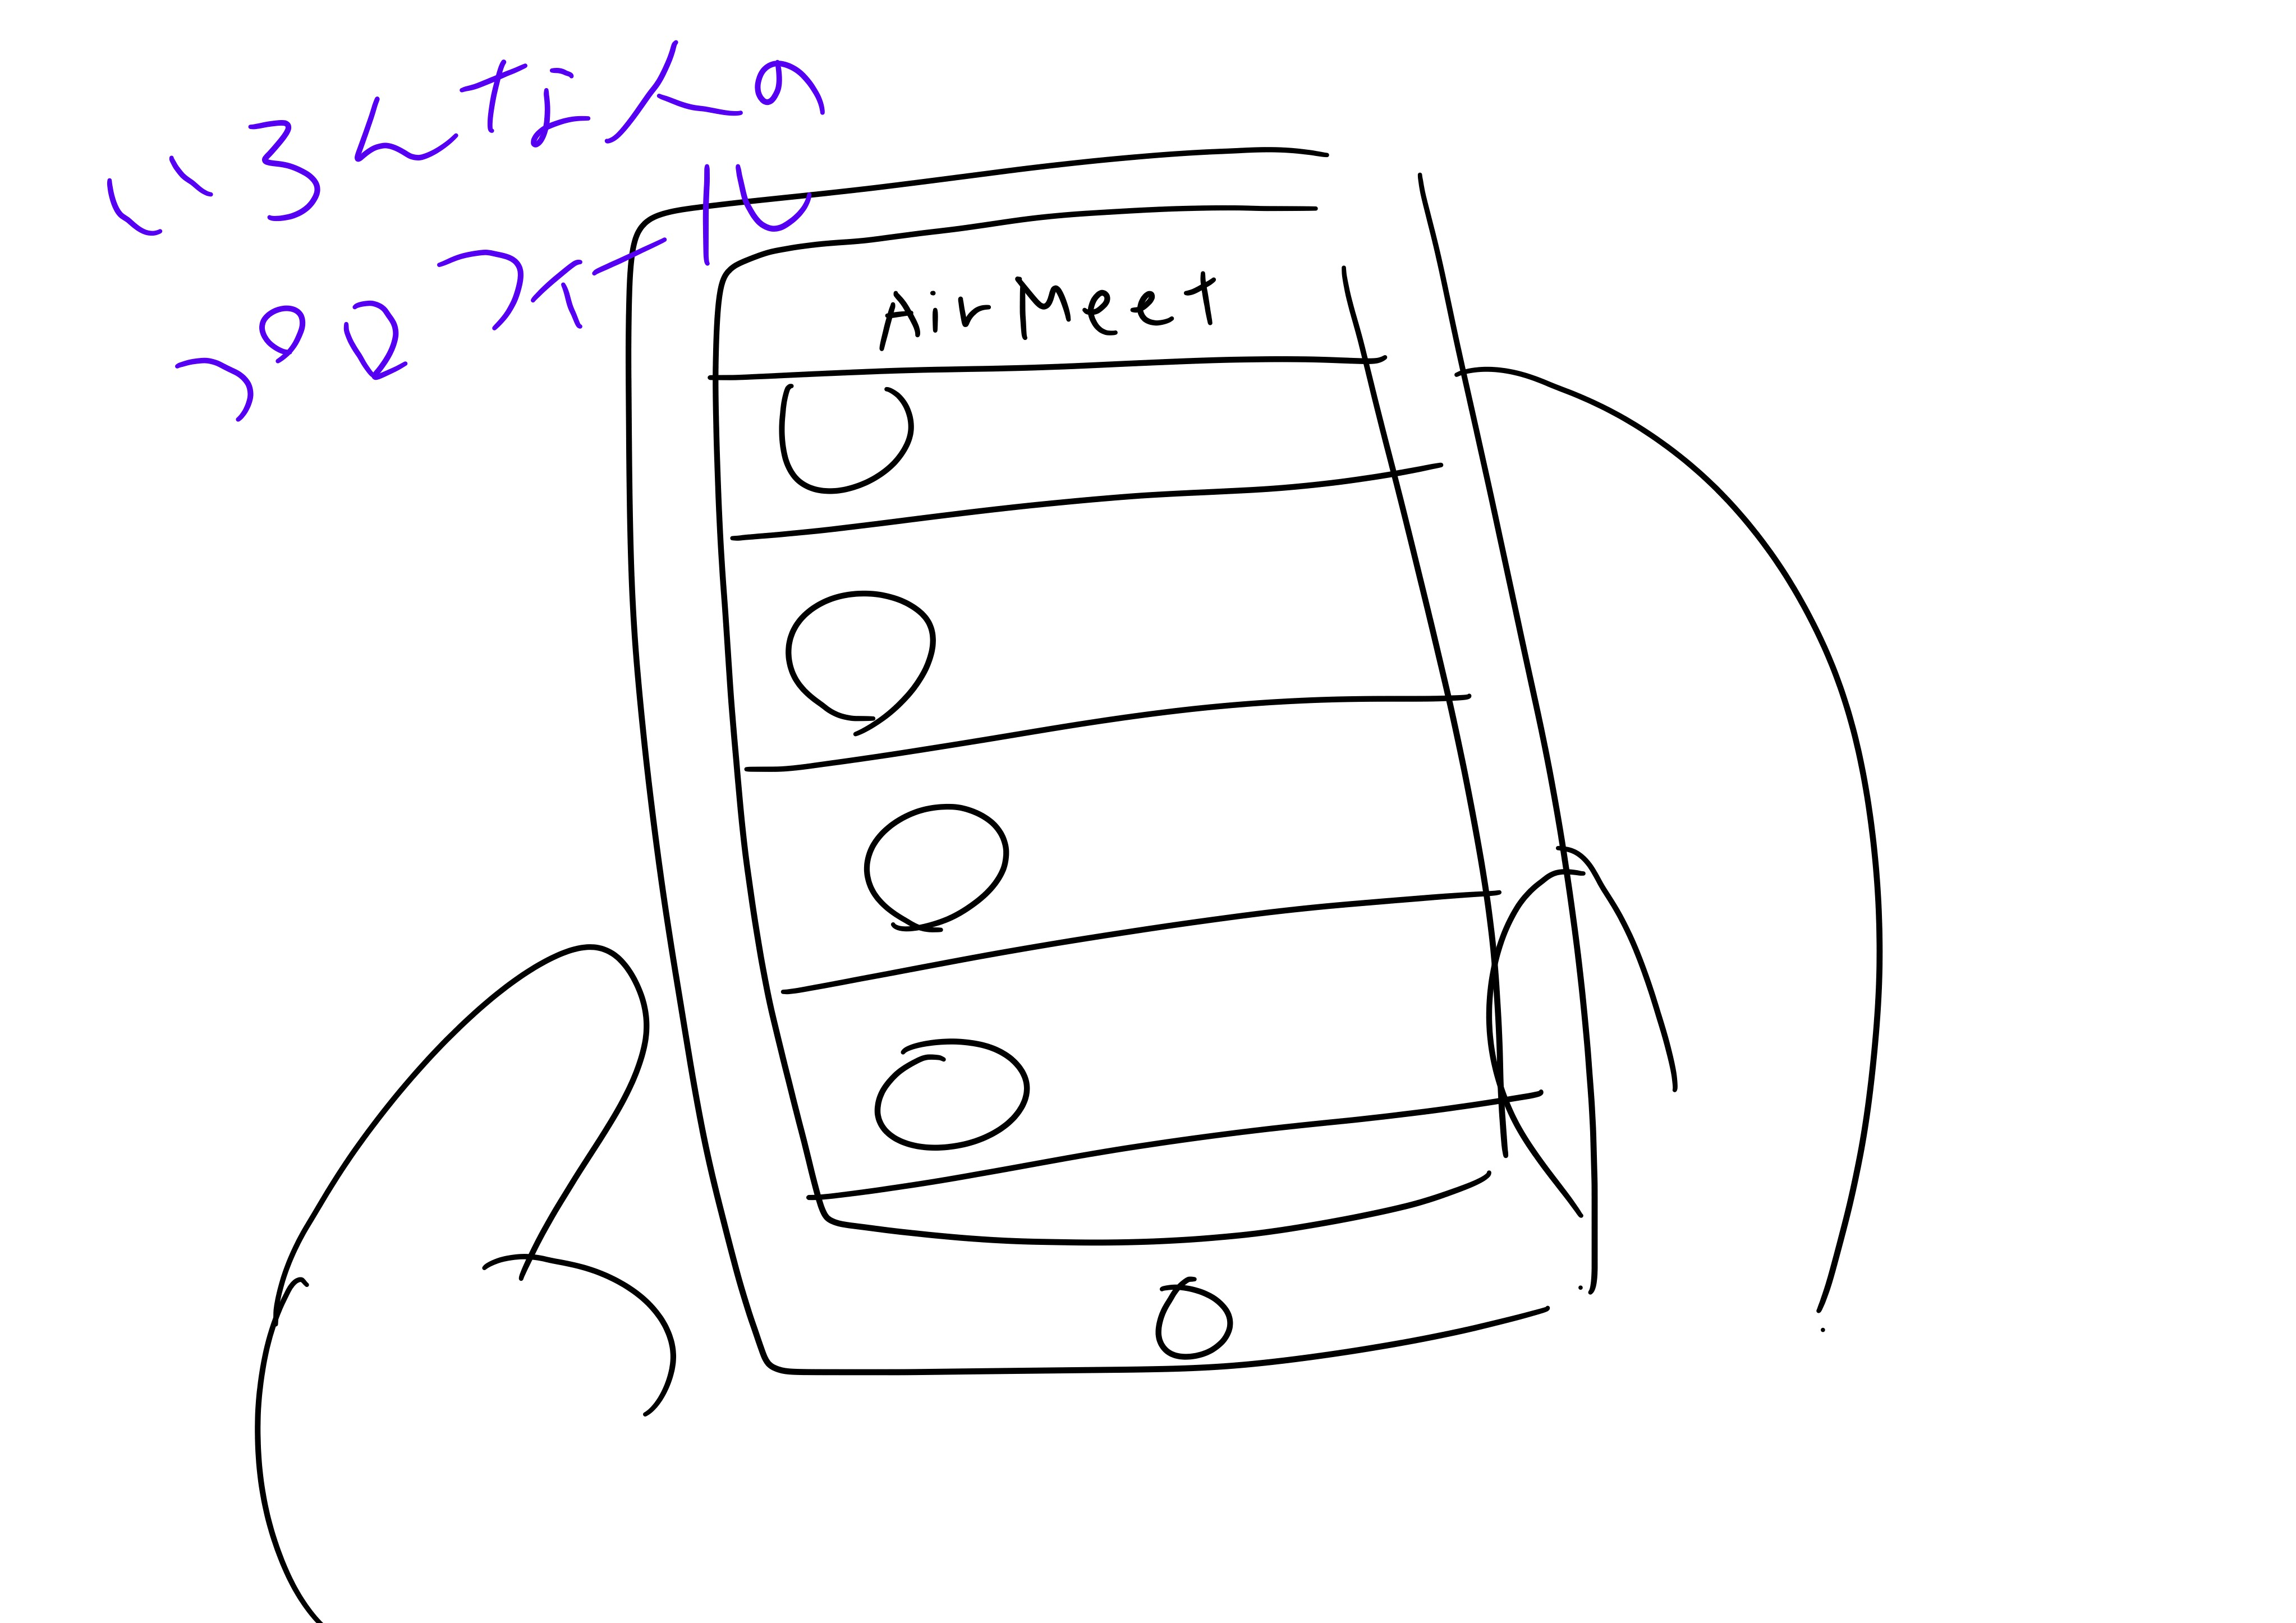 いろんな人の
プロフィール
AirMeet